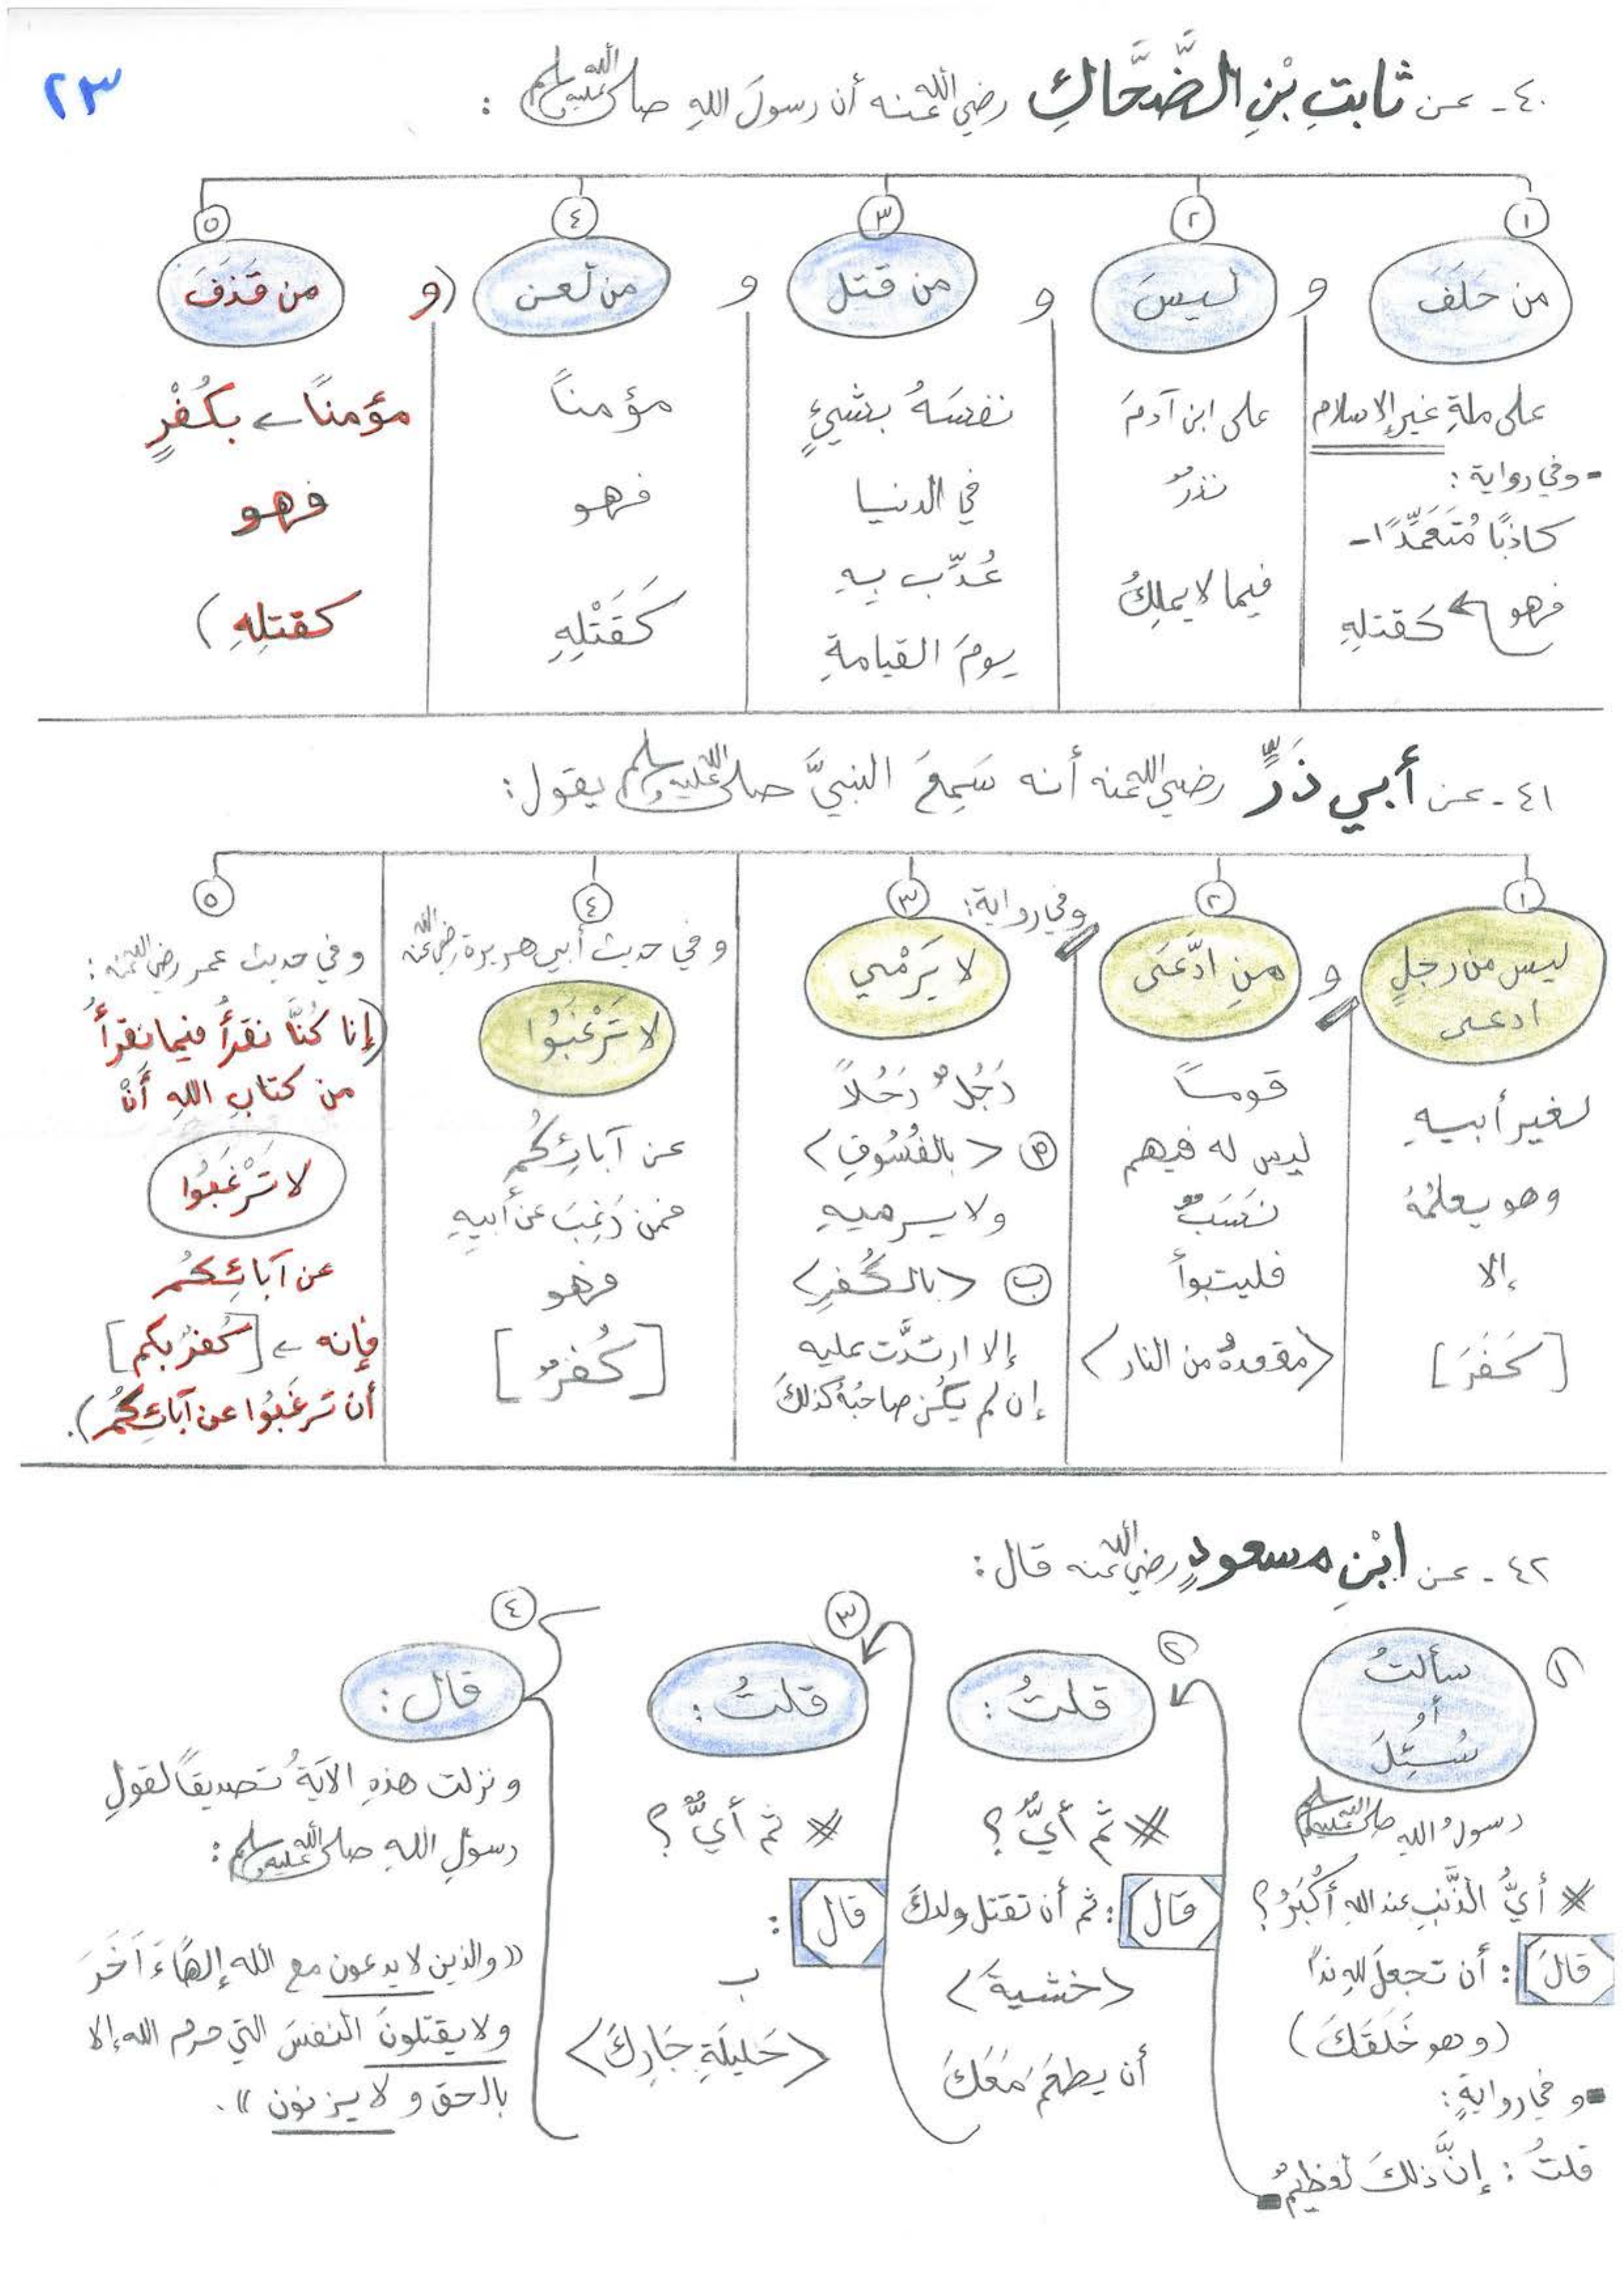 ٢٣
٤٠ـ عن ثابتِ بْنِ الضَّحَّاكِ رضي الله عنه أن رسولَ اللهِ صلى الله عليه وسلم :
١
من حَلَفَ
على ملةِ غيرِ الإسلام
- وفي رواية :
كاذبًا مُتَعَمِّدًا -
فهو كَقتلهِ
و
٢
ليسَ
على ابن آدمَ
نذرٌ
فيما لا يملِكُ
و
٣
من قتل
نفسَهُ بشيءٍ
في الدنيا
عُذِّب بِهِ
يومَ القيامةِ
و
٤
من لعن
مؤمناً
فهو
كَقَتْلِهِ
(و
٥
من قَذَفَ
مؤمنًا ← بكُفْرٍ
فهو
كقتلِهِ)
٤١ـ عن أبي ذَرٍّ رضي الله عنه أنه سَمِعَ النبيَّ صلى الله عليه وسلم يقول:
١
ليس من رجلٍ
ادعى
لغير أبيهِ
وهو يعلمُهُ
إلا
[كَفَرَ]
و
٢
منِ ادَّعَى
قوماً
ليس له فيهم
نَسَبٌ
فليتبوأ
<مقعدهُ من النار>
وفي رواية:
٣
لا يَرْمي
رَجُلٌ رَجُلاً
أ <بالفُسُوقِ>
ولا يرميهِ
ب <بالكُفرِ>
إلا ارتدَّت عليه
إن لم يكُن صاحبُهُ كذلكَ
٤
وفي حديث أبي هريرة رضي الله عنه
لا تَرْغَبُوا
عن آبائِكُم
فمن رَغِبَ عن أبيهِ
فهو
[كُفرٌ]
٥
وفي حديث عمر رضي الله عنه :
(إنا كُنَّا نقرأُ فيما نقرأُ
من كتابِ اللهِ أنْ
لا تَرْغَبُوا
عن آبائِكُم
فإنه ← [كُفرٌ بكم]
أن تَرغَبُوا عن آبائِكُمْ).
٤٢ـ عن ابْنِ مسعودٍ رضي الله عنه قال:
١
سألتُ
أو
سُئِلَ
رسولُ الله صلى الله عليه وسلم
* أيُّ الذَّنبِ عند اللهِ أكْبَرُ؟
قالَ : أن تجعلَ للهِ نداً
(وهو خَلَقَكَ)
▪ وفي روايةٍ:
قلتُ : إنَّ ذلكَ لعظيمٌ
٢
قلتُ :
* ثم أيٌّ؟
قال : ثم أن تقتل ولدكَ
<خشيةَ>
أن يطعَمَ مَعَكَ
٣
قلتُ :
* ثم أيٌّ؟
قال :
ب
<حَليلَةِ جَارِكَ>
٤
قال :
ونزلت هذهِ الآيةُ تصديقاً لقولِ
رسولِ اللهِ صلى الله عليه وسلم :
«والذين لا يدعون مع الله إلهًا ءَاخَرَ
ولا يقتلونَ النفسَ التي حرم الله إلا
بالحق ولا يزنون».